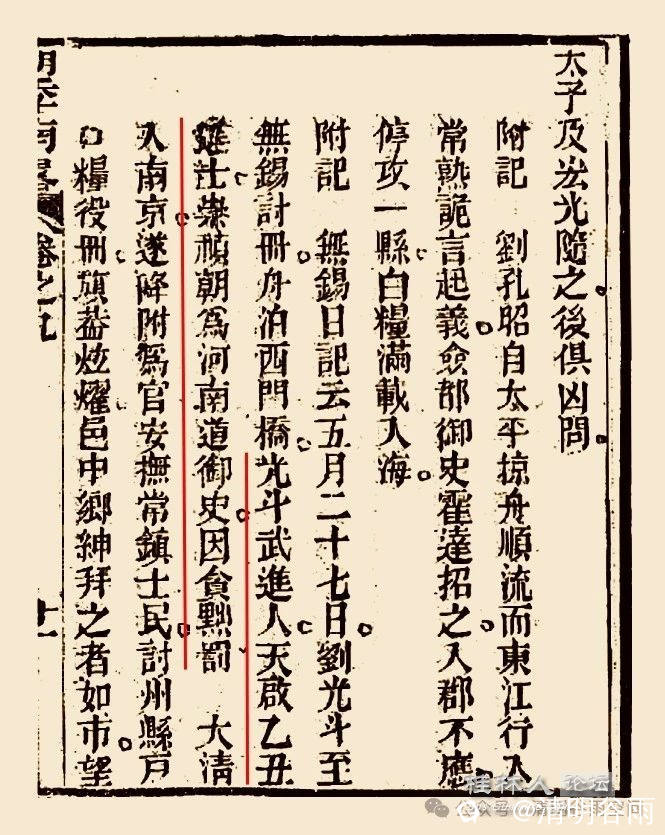 太子及弘光隨之後俱凶問
附記 劉孔昭自太平掠舟順流而東江行入
常熟詭言起義僉都御史霍達招之入郡不應
停攻一縣白糧滿載入海
附記 無錫日記云五月二十七日劉光斗至
無錫討冊舟泊西門橋光斗武進人天啟乙丑
進士崇禎朝爲河南道御史因貪黜罰 大清
入南京遂降附爲官安撫常鎮士民討州縣戸
口糧役冊旗蓋炫燿邑中鄉紳拜之者如市望
明季南畧 卷之九
十一
桂林人论坛
公众号
@清明谷雨